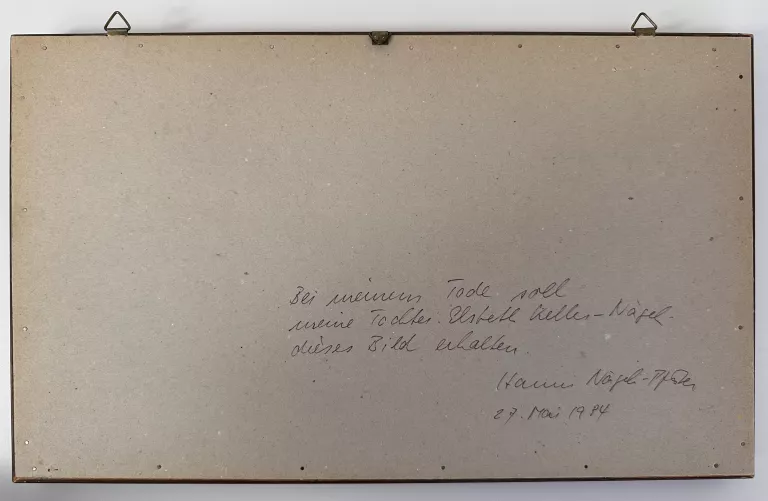 Bei meinem Tode soll
meine Tochter Elsbeth Keller-Nägeli
dieses Bild erhalten.
Hanni Nägeli-
27. Mai 1984